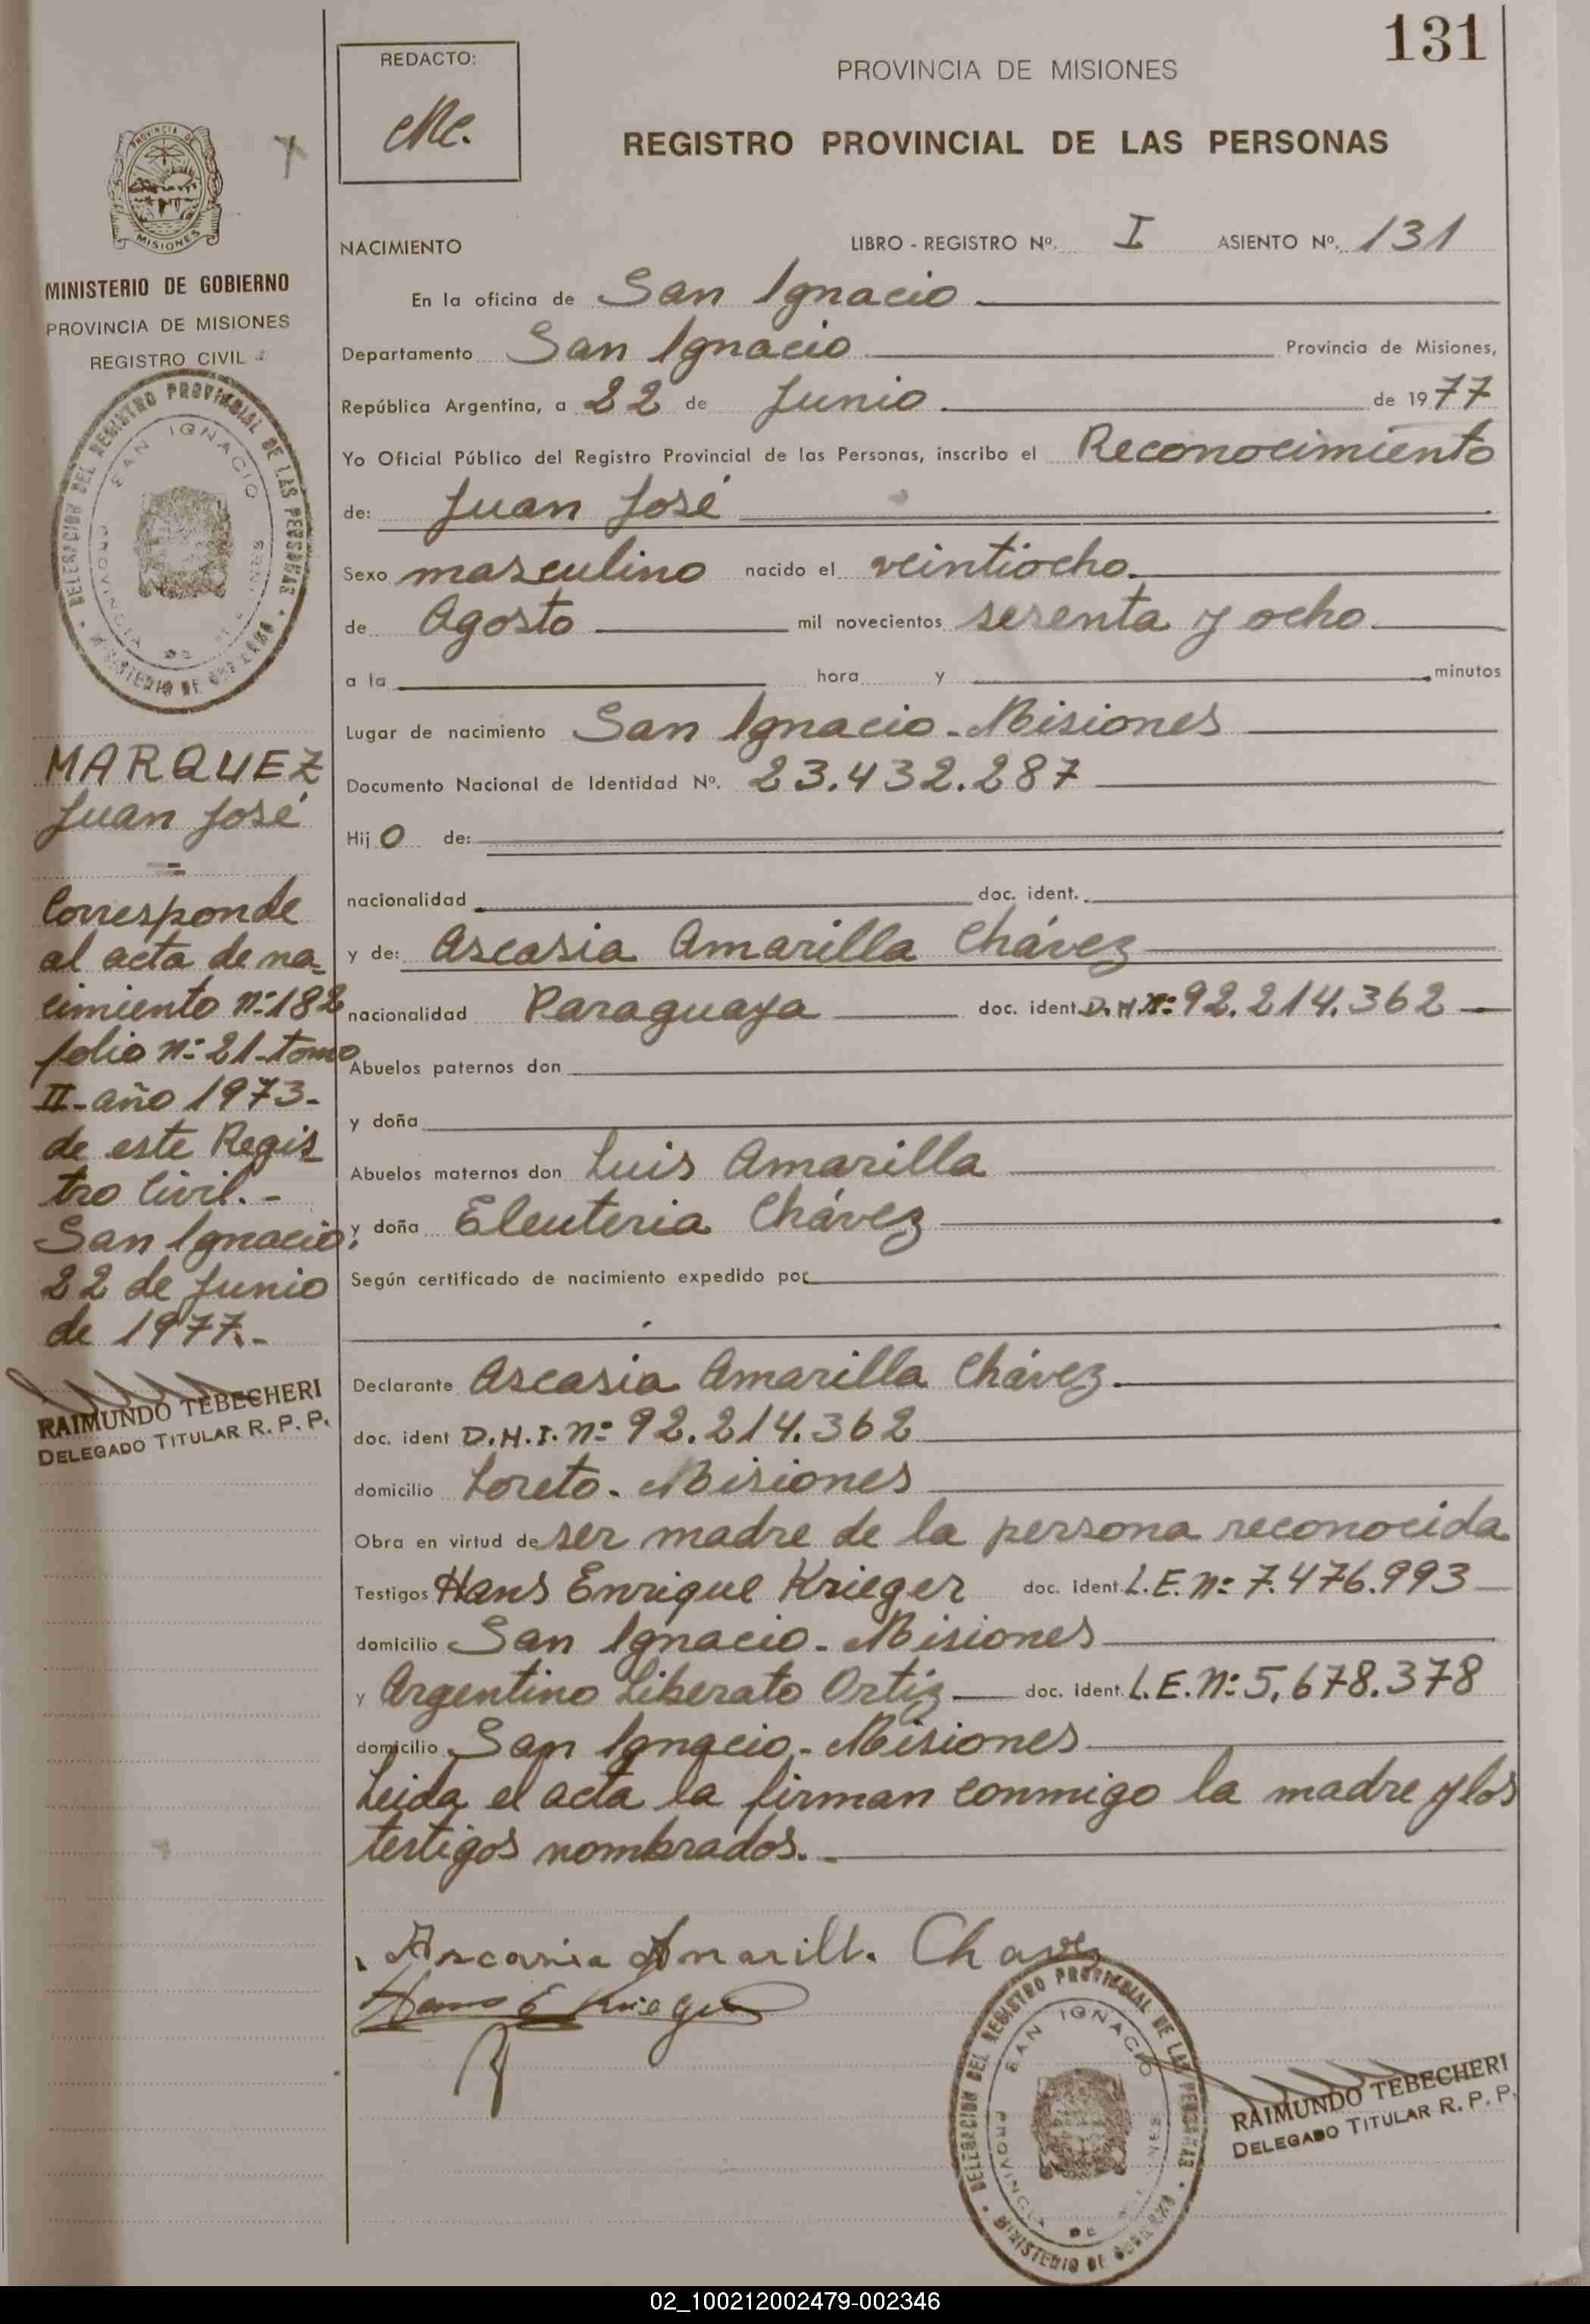 131
REDACTO:
PROVINCIA DE MISIONES
REGISTRO PROVINCIAL DE LAS PERSONAS
PROVINCIA DE
MISIONES
MINISTERIO DE GOBIERNO
PROVINCIA DE MISIONES
REGISTRO CIVIL
DELEGACION DEL REGISTRO PROVINCIAL DE LAS PERSONAS
SAN IGNACIO
PROVINCIA DE
MINISTERIO DE
MARQUEZ
Juan José
=
Corresponde
al acta de na-
cimiento nº 182
folio nº 21-tomo
II-año 1973-
de este Regis
tro Civil.-
San Ignacio,
22 de Junio
de 1977.-
RAIMUNDO TEBECHERI
DELEGADO TITULAR R. P. P.
NACIMIENTO LIBRO - REGISTRO Nº. I ASIENTO Nº. 131
En la oficina de San Ignacio
Departamento San Ignacio Provincia de Misiones,
República Argentina, a 22 de Junio de 1977
Yo Oficial Público del Registro Provincial de las Personas, inscribo el Reconocimiento
de: Juan José
Sexo masculino nacido el veintiocho.
de Agosto mil novecientos sesenta y ocho
a la hora y minutos
Lugar de nacimiento San Ignacio - Misiones
Documento Nacional de Identidad Nº. 23.432.287
Hijo de:
nacionalidad doc. ident.
y de: Ascasia Amarilla Chávez
nacionalidad Paraguaya doc. ident. 92.214.362
Abuelos paternos don
y doña
Abuelos maternos don Luis Amarilla
y doña Eleuteria Chávez
Según certificado de nacimiento expedido por
Declarante Ascasia Amarilla Chávez.
doc. ident D.N.I. nº 92.214.362
domicilio Loreto - Misiones
Obra en virtud de ser madre de la persona reconocida
Testigos Hans Enrique Krieger doc. ident. L.E. nº 7.476.993
domicilio San Ignacio - Misiones
y Argentino Liberato Ortiz doc. ident. L.E. Nº 5.678.378
domicilio San Ignacio - Misiones
Leida el acta la firman conmigo la madre y los
testigos nombrados.-
Ascasia Amarill. Chavez
Hans E Krieger
DELEGACION DEL REGISTRO PROVINCIAL DE LAS PERSONAS
SAN IGNACIO
PROVINCIA DE
MINISTERIO DE
RAIMUNDO TEBECHERI
DELEGADO TITULAR R. P. P.
02_100212002479-002346